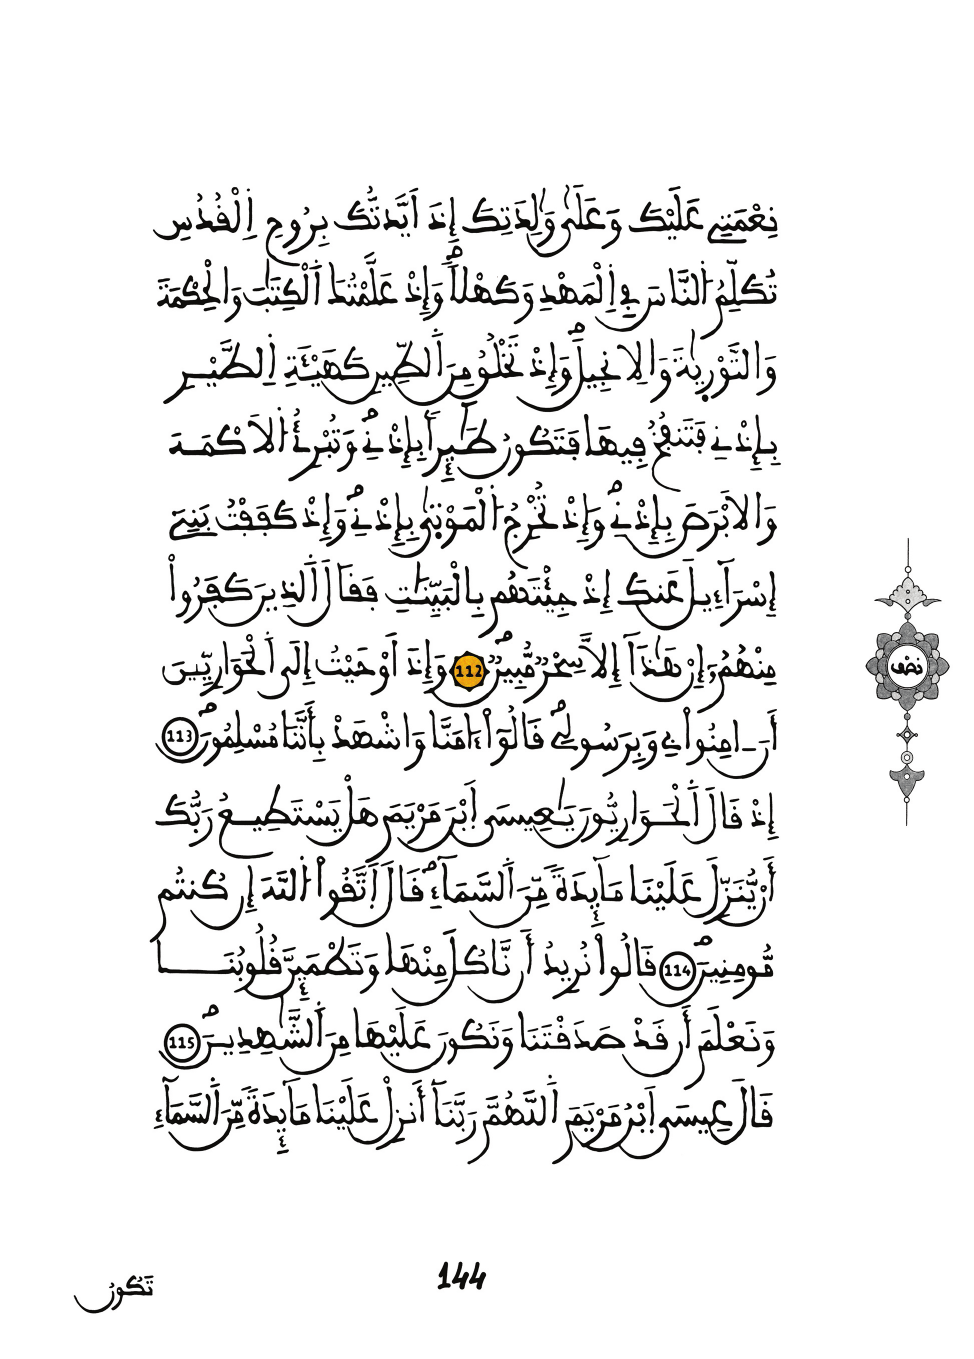 نِعْمَتِے عَلَيْكَ وَعَلَىٰ وَٰلِدَتِكَ إِذَ اَيَّدتُّكَ بِرُوحِ اِ۬لْقُدُسِ
تُكَلِّمُ اُ۬لنَّاسَ فِے اِ۬لْمَهْدِ وَكَهْلاٗۖ وَإِذْ عَلَّمْتُكَ اَ۬لْكِتَٰبَ وَالْحِكْمَةَ
وَالتَّوْر۪يٰةَ وَالِانجِيلَۖ وَإِذْ تَخْلُقُ مِنَ اَ۬لطِّينِ كَهَيْـَٔةِ اِ۬لطَّيْرِ
بِإِذْنِے فَتَنفُخُ فِيهَا فَتَكُونُ طَٰٓئِراَۢ بِإِذْنِےۖ وَتُبْرِۓُ اُ۬لَاكْمَهَ
وَالَابْرَصَ بِإِذْنِےۖ وَإِذْ تُخْرِجُ اُ۬لْمَوْت۪يٰ بِإِذْنِےۖ وَإِذْ كَفَفْتُ بَنِےٓ
إِسْرَآءِيلَ عَنكَ إِذْ جِئْتَهُم بِالْبَيِّنَٰتِ فَقَالَ اَ۬لذِينَ كَفَرُواْ
مِنْهُمُۥٓ إِنْ هَٰذَآ إِلَّا سِحْرٞ مُّبِينٞۖ 112 وَإِذَ اَوْحَيْتُ إِلَى اَ۬لْحَوَارِيِّـۧنَ
أَنَ اٰمِنُواْ بِے وَبِرَسُولِےۖ قَالُوٓاْ ءَامَنَّا وَاشْهَدْ بِأَنَّنَا مُسْلِمُونَۖ 113
إِذْ قَالَ اَ۬لْحَوَارِيُّونَ يَٰعِيسَى اَ۪بْنَ مَرْيَمَ هَلْ يَسْتَطِيعُ رَبُّكَ
أَنْ يُّنَزِّلَ عَلَيْنَا مَآئِدَةٗ مِّنَ اَ۬لسَّمَآءِۖ قَالَ اَ۪تَّقُواْ اُ۬للَّهَ إِن كُنتُم
مُّومِنِينَۖ 114 قَالُواْ نُرِيدُ أَن نَّاكُلَ مِنْهَا وَتَطْمَئِنَّ قُلُوبُنَا
وَنَعْلَمَ أَن قَدْ صَدَقْتَنَا وَنَكُونَ عَلَيْهَا مِنَ اَ۬لشَّٰهِدِينَۖ 115
قَالَ عِيسَى اَ۪بْنُ مَرْيَمَ اَ۬للَّهُمَّ رَبَّنَآ أَنزِلْ عَلَيْنَا مَآئِدَةٗ مِّنَ اَ۬لسَّمَآءِ
144
تَكُونُ
نصف